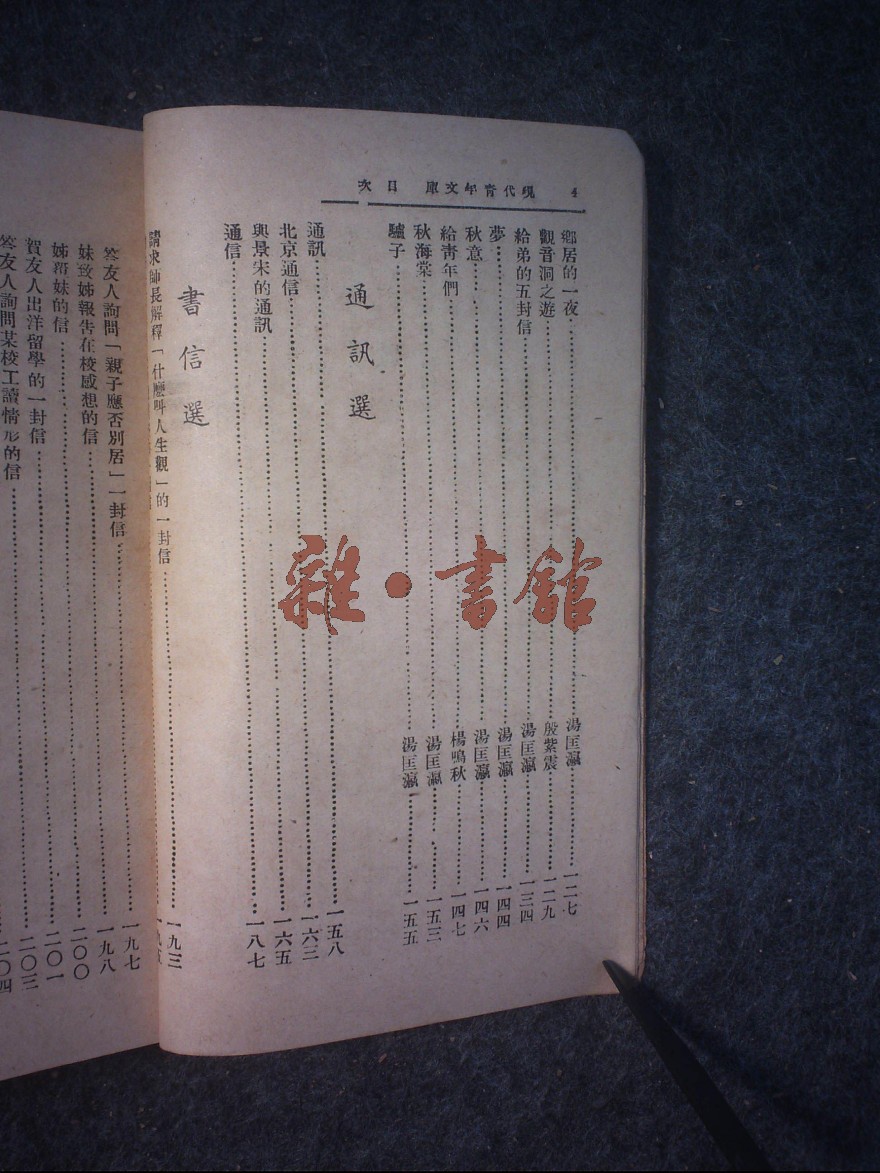 4 現代青年文庫 目次
鄉居的一夜 湯匡瀛 一二七
觀音洞之遊 殷紫震 一二九
給弟的五封信 湯匡瀛 一三四
夢 湯匡瀛 一四四
秋意 湯匡瀛 一四六
給青年們 楊鳴秋 一四七
秋海棠 湯匡瀛 一五三
驢子 湯匡瀛 一五五
通訊選
通訊 一五八
北京通信 一六三
與景宋的通訊 一六五
通信 一八七
書信選
請求師長解釋「什麼叫人生觀」的一封信 一九三
答友人詢問「親子應否別居」一封信 一九七
妹致姊報告在校感想的信 一九八
姊 妹的信 二〇〇
賀友人出洋留學的一封信 二〇一
答友人詢問某校工讀情形的信 二〇三
二〇四
雜·書館